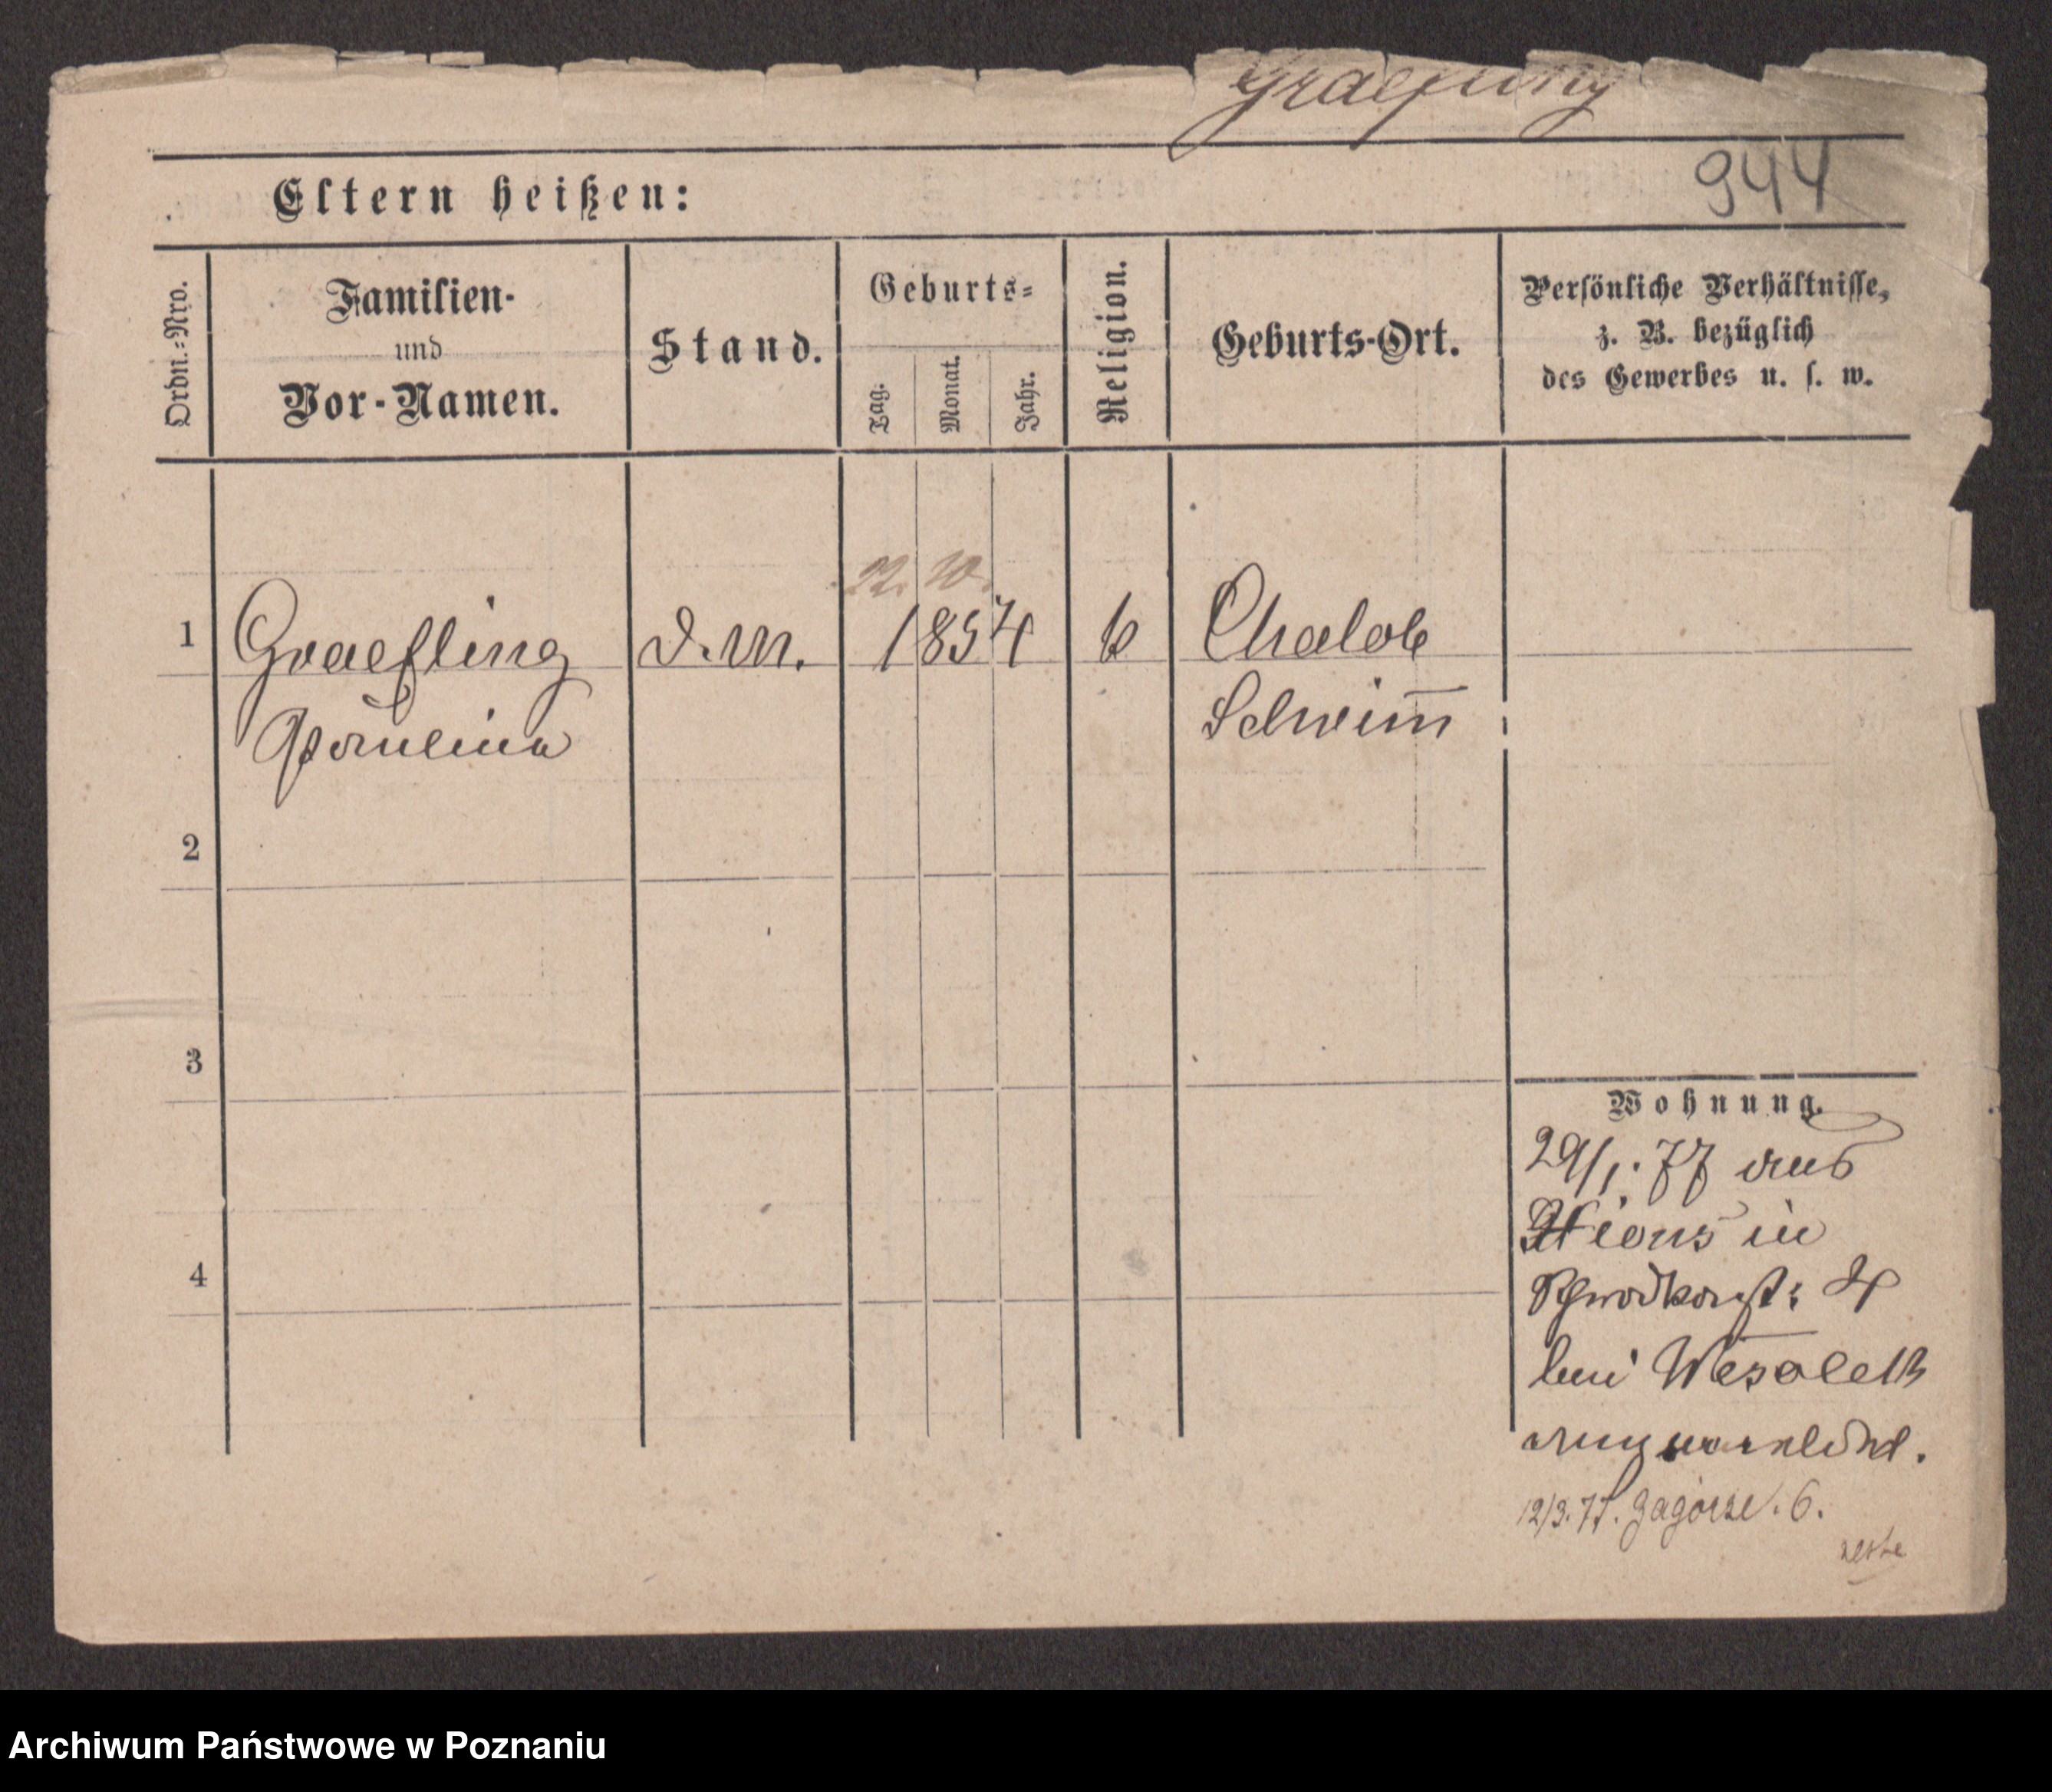 Graefling
944
Eltern heißen:
Ordn.-Nro.
Familien-
und
Vor-Namen.
Stand.
Geburts-
Tag.
Monat.
Jahr.
Religion.
Geburts-Ort.
Persönliche Verhältnisse,
z. B. bezüglich
des Gewerbes u. s. w.
22. 10.
1 Graefling d. M. 1854 k Chalob
Paulina Schrim̅
2
3
4
Wohnung.
29/1. 77 aus
Xions in
4
bei Wesolek
angemeldet.
12/3. 77. Zagórze. 6.
Archiwum Państwowe w Poznaniu